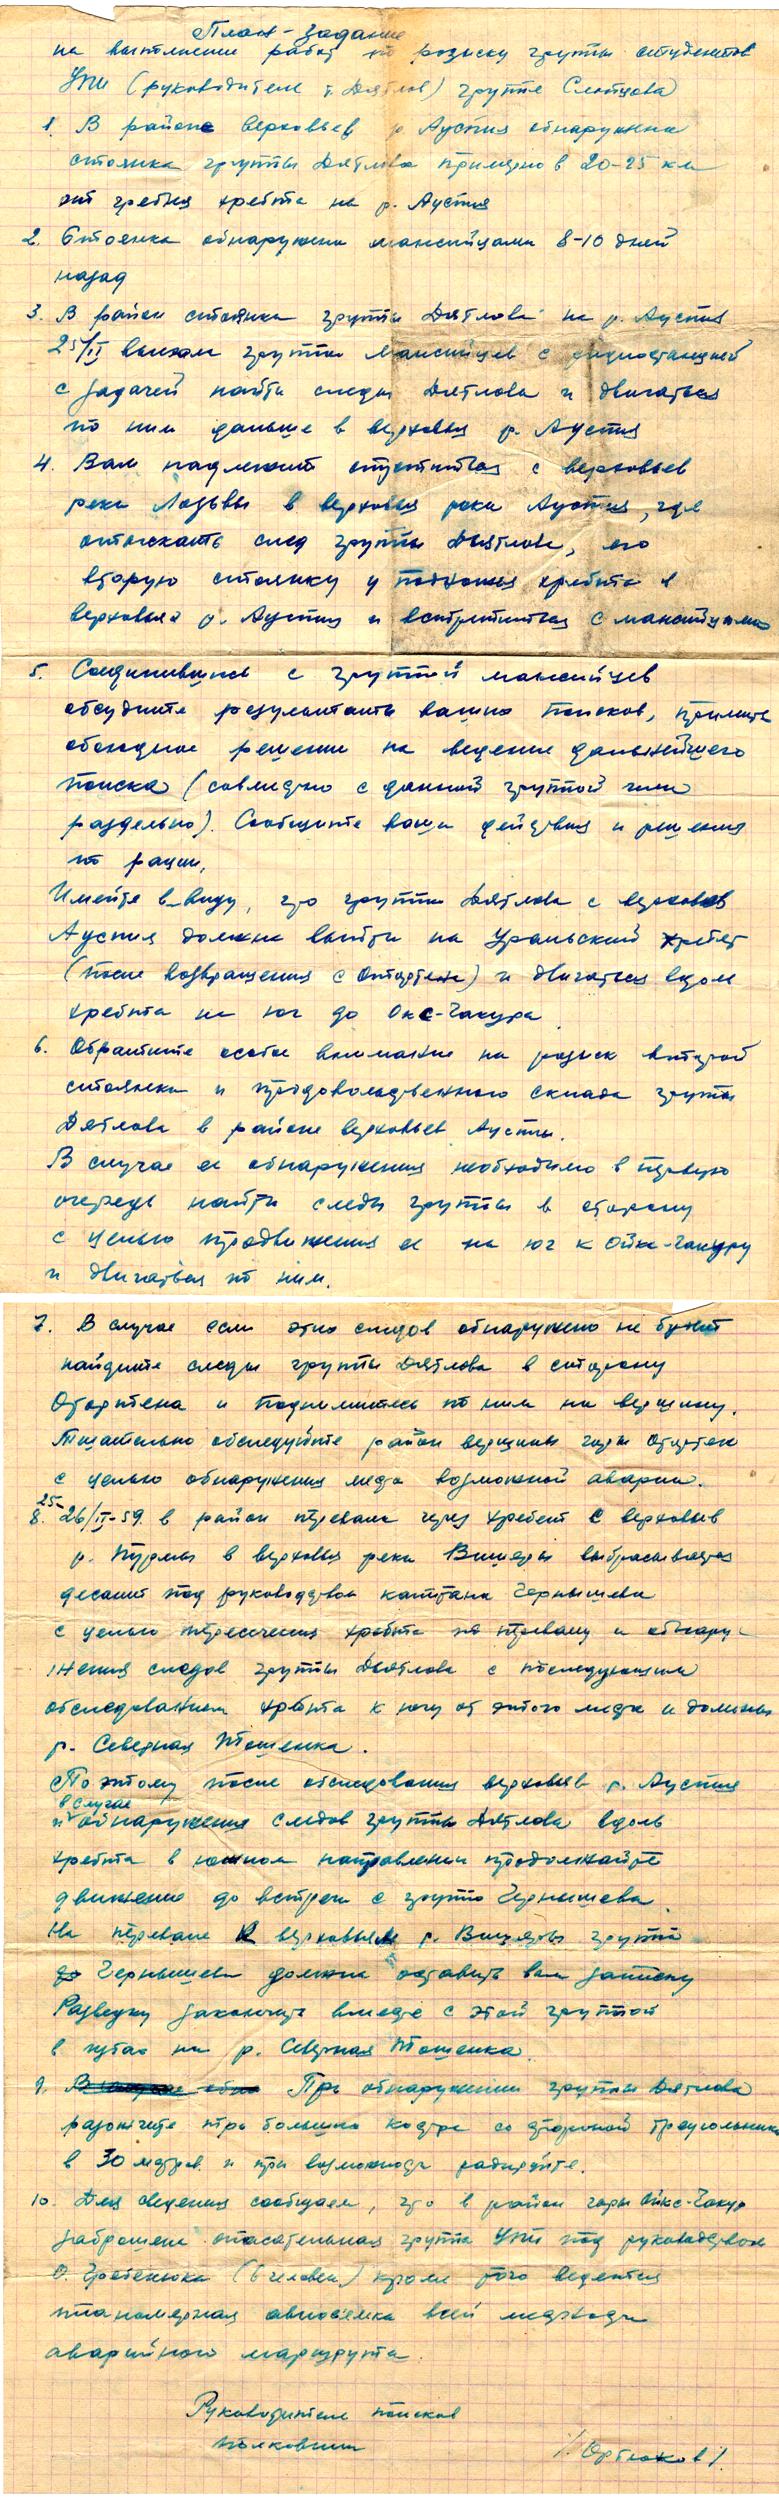 План-задание
на выполнение работ по розыску группы студентов
УПИ (руководитель т. Дятлов) группе Слобцова
1. В районе верховьев р. Ауспия обнаружена
стоянка группы Дятлова примерно в 20-25 км
от гребня хребта на р. Ауспия
2. Стоянка обнаружена мансийцами 8-10 дней
назад
3. В район стоянки группы Дятлова на р. Ауспия
25/II выехала группа мансийцев с радиостанцией
с задачей найти следы Дятлова и двигаться
по ним дальше в верховья р. Ауспия
4. Вам надлежит спуститься с верховьев
реки Лозьвы в верховья реки Ауспия, где
отыскать след группы Дятлова, его
вторую стоянку у подножия хребта в
верховьях р. Ауспия и встретиться с мансийцами
5. Соединившись с группой мансийцев
обсудите результаты ваших поисков, примите
обоюдное решение на ведение дальнейшего
поиска (совместно с данной группой или
раздельно). Сообщите ваши действия и решения
по рации.
Имейте в виду, что группа Дятлова с верховьев
Ауспия должна выйти на Уральский хребет
(после возвращения с Отортена) и двигаться вдоль
хребта на юг до Ойкс-Чакура
6. Обратите особое внимание на розыск второй
стоянки и продовольственного склада группы
Дятлова в районе верховьев Ауспии.
В случае ее обнаружения необходимо в первую
очередь найти следы группы в сторону
с целью продвижения ее на юг к Ойкс-Чакуру
и двигаться по ним.
7. В случае если этих следов обнаружено не будет
найдите следы группы Дятлова в сторону
Отортена и поднимитесь по ним на вершину.
Тщательно обследуйте район вершины горы Отортен
с целью обнаружения места возможной аварии.
8. 25-26/II-59. в район перевала через хребет с верховьев
р. Пурмы в верховья реки Вишеры выбрасывается
десант под руководством капитана Чернышева
с целью пересечения хребта по перевалу и обнару-
жения следов группы Дятлова с последующим
обследованием хребта к югу от этого места и долины
р. Северная Тошемка.
Поэтому после обследования верховьев р. Ауспия
и в случае обнаружения следов группы Дятлова вдоль
хребта в южном направлении продолжайте
движение до встречи с группой Чернышева
На перевале к верховьям р. Вишеры группа
Чернышева должна оставить вам записку
Разведку закончить вместе с этой группой
в чумах на р. Северная Тошемка.
9. При обнаружении группы Дятлова
разожгите три больших костра со стороной треугольника
в 30 метров и при возможности радируйте.
10. Для сведения сообщаем, что в район горы Ойкс-Чакур
заброшена спасательная группа УПИ под руководством
О. Гребенюка (6 человек) кроме того ведется
планомерная авиосъемка всей местности
аварийного маршрута.
Руководитель поисков
полковник /Ортюков/.